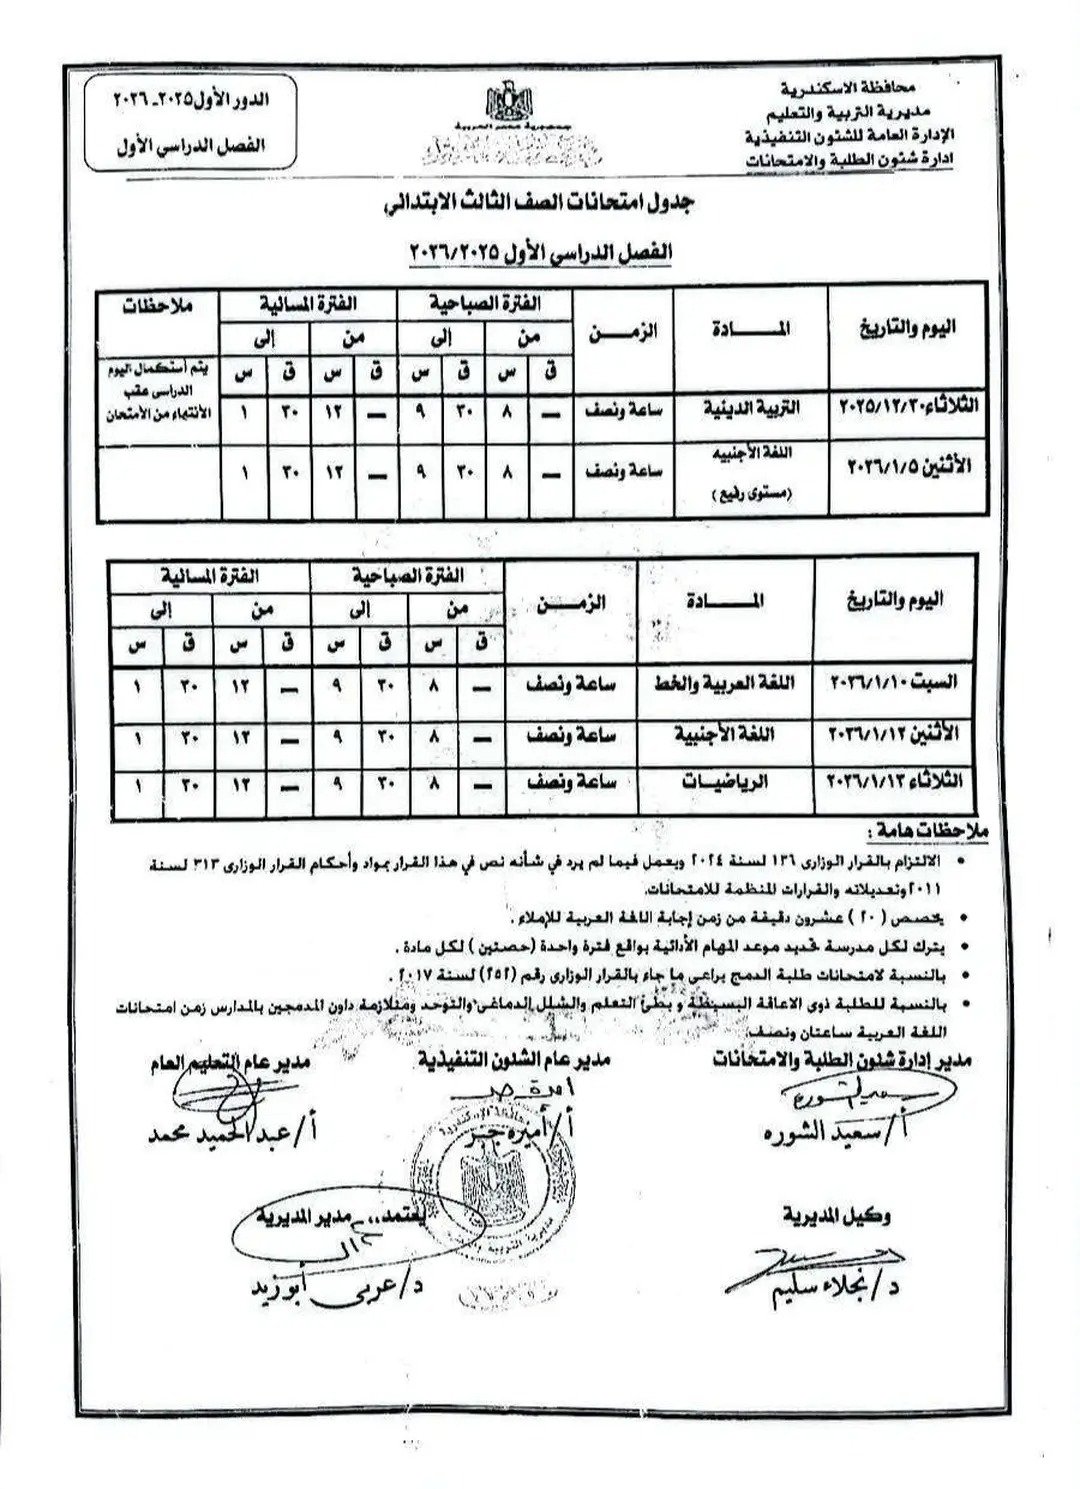 محافظة الاسكندرية
مديرية التربية والتعليم
الإدارة العامة للشئون التنفيذية
ادارة شئون الطلبة والامتحانات
جمهورية مصر العربية
الدور الأول ٢٠٢٥ـ ٢٠٢٦
الفصل الدراسي الأول
جدول امتحانات الصف الثالث الابتدائي
الفصل الدراسي الأول ٢٠٢٦/٢٠٢٥
اليوم والتاريخ المــــادة الزمــن الفترة الصباحية الفترة المسائية ملاحظات
من إلى من إلى
ق س ق س ق س ق س
الثلاثاء ٢٠٢٥/١٢/٣٠ التربية الدينية ساعة ونصف — ٨ ٣٠ ٩ — ١٢ ٣٠ ١ يتم أستكمال اليوم الدراسى عقب الأنتهاء من الأمتحان
الأثنين ٢٠٢٦/١/٥ اللغة الأجنبيه (مستوى رفيع) ساعة ونصف — ٨ ٣٠ ٩ — ١٢ ٣٠ ١
اليوم والتاريخ المــــادة الزمــن الفترة الصباحية الفترة المسائية
من إلى من إلى
ق س ق س ق س ق س
السبت ٢٠٢٦/١/١٠ اللغة العربية والخط ساعة ونصف — ٨ ٣٠ ٩ — ١٢ ٣٠ ١
الأثنين ٢٠٢٦/١/١٢ اللغة الأجنبية ساعة ونصف — ٨ ٣٠ ٩ — ١٢ ٣٠ ١
الثلاثاء ٢٠٢٦/١/١٣ الرياضيات ساعة ونصف — ٨ ٣٠ ٩ — ١٢ ٣٠ ١
ملاحظات هامة :
• الالتزام بالقرار الوزارى ١٣٦ لسنة ٢٠٢٤ ويعمل فيما لم يرد في شأنه نص في هذا القرار بمواد وأحكام القرار الوزارى ٣١٣ لسنة
٢٠١١ وتعديلاته والقرارات المنظمة للامتحانات.
• يخصص ( ٢٠ ) عشرون دقيقة من زمن إجابة اللغة العربية للإملاء .
• يترك لكل مدرسة تحديد موعد المهام الأدائية بواقع فترة واحدة (حصتين ) لكل مادة .
• بالنسبة لامتحانات طلبة الدمج يراعى ما جاء بالقرار الوزارى رقم (٢٥٢) لسنة ٢٠١٧ .
• بالنسبة للطلبة ذوى الاعاقة البسيطة و بطئ التعلم والشلل الدماغى والتوحد ومتلازمة داون المدمجين بالمدارس زمن امتحانات
اللغة العربية ساعتان ونصف.
مدير إدارة شئون الطلبة والامتحانات مدير عام الشئون التنفيذية مدير عام التعليم العام
أ/ سعيد الشوره أ/ أميره جبر أ/ عبد الحميد محمد
وكيل المديرية يعتمد،، مدير المديرية
د/ نجلاء سليم د/ عربى أبوزيد